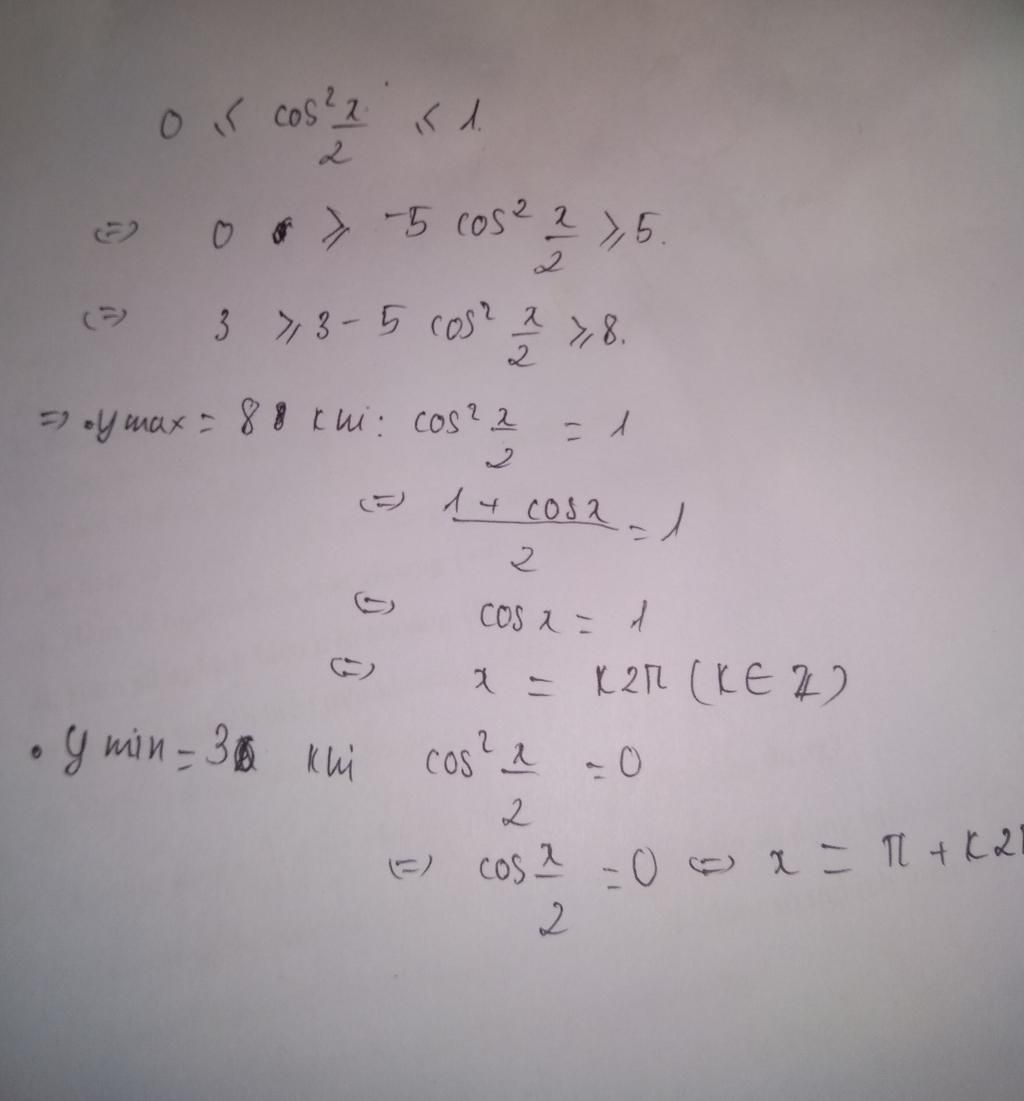 0 ≤ cos² x/2 ≤ 1.
⇔ 0 ≥ -5 cos² x/2 ≥ 5.
⇔ 3 ≥ 3 - 5 cos² x/2 ≥ 8.
⇒ • y max = 8 khi: cos² x/2 = 1
⇔ (1 + cos x)/2 = 1
⇔ cos x = 1
⇔ x = k2π (k ∈ Z)
• y min = 3 khi cos² x/2 = 0
⇔ cos x/2 = 0 ⇔ x = π + k2